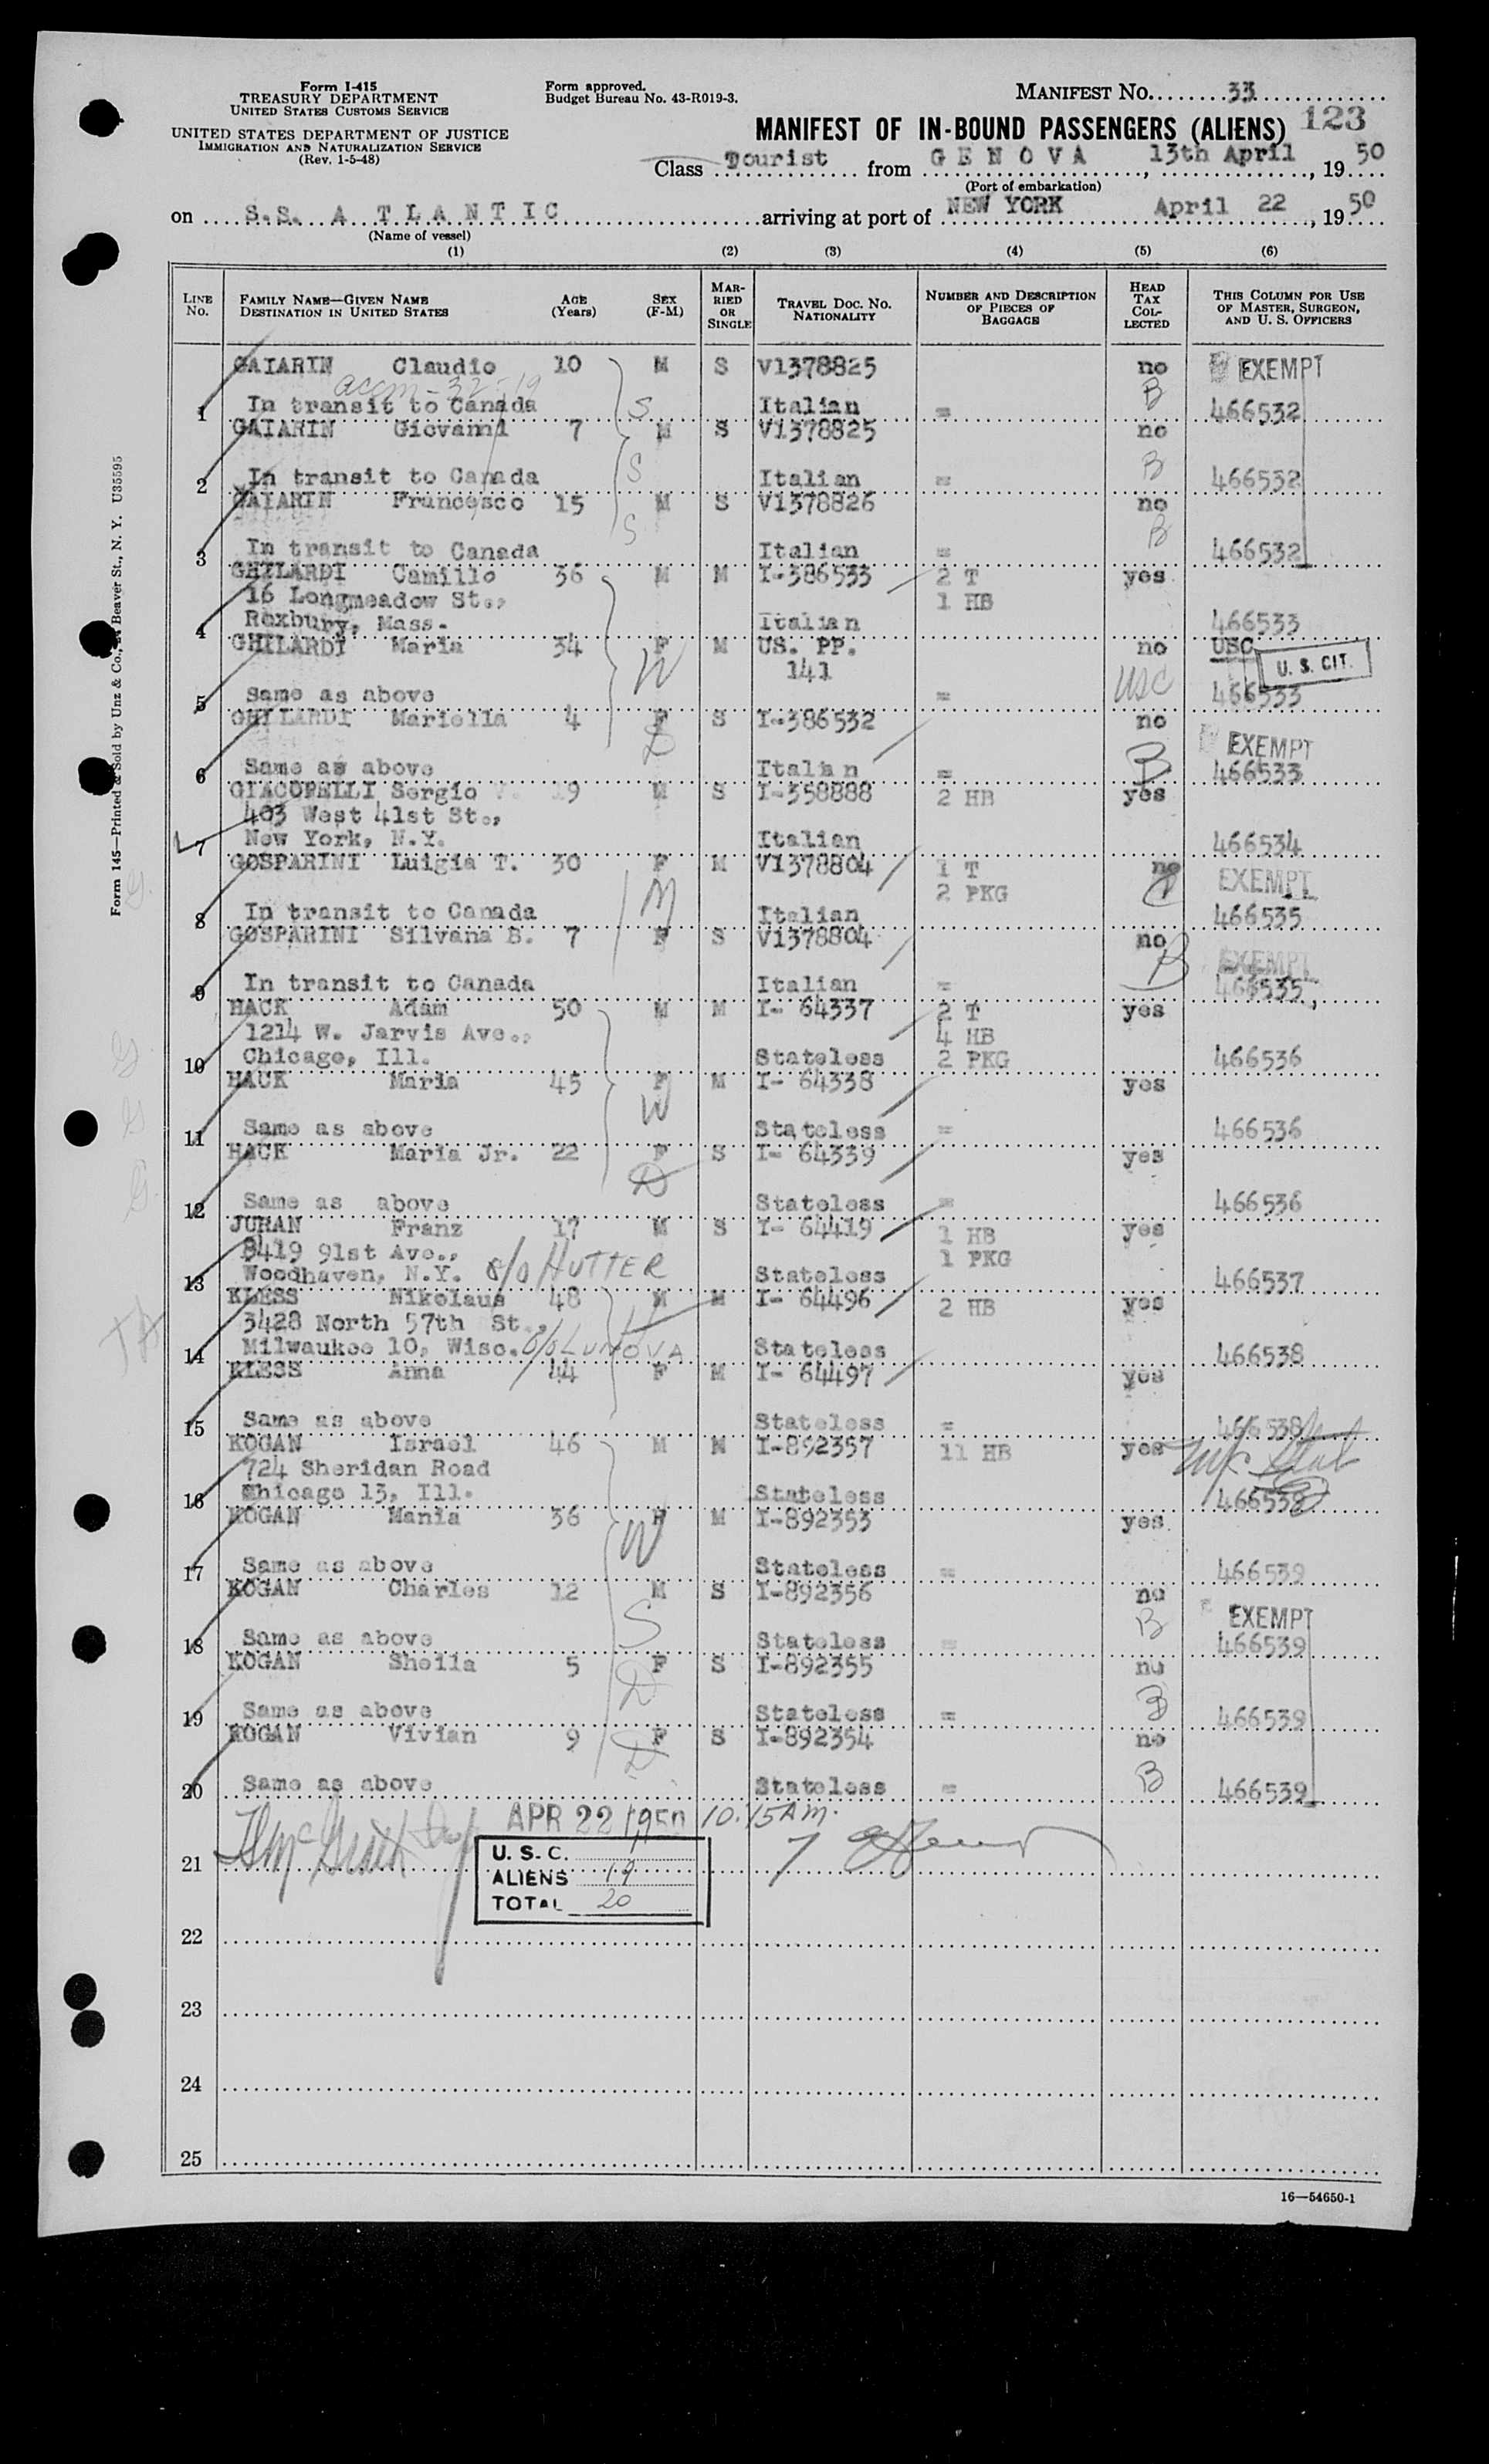 Form I-415
TREASURY DEPARTMENT
UNITED STATES CUSTOMS SERVICE
UNITED STATES DEPARTMENT OF JUSTICE
IMMIGRATION AND NATURALIZATION SERVICE
(Rev. 1-5-48)
Form approved.
Budget Bureau No. 43-R019-3.
MANIFEST NO. 33
MANIFEST OF IN-BOUND PASSENGERS (ALIENS) 123
Class Tourist from GENOVA, 13th April, 1950
(Port of embarkation)
on S.S. ATLANTIC arriving at port of NEW YORK April 22, 1950
(Name of vessel)
(1) (2) (3) (4) (5) (6)
LINE NO. FAMILY NAME—GIVEN NAME DESTINATION IN UNITED STATES AGE (Years) SEX (F-M) MARRIED OR SINGLE TRAVEL DOC. NO. NATIONALITY NUMBER AND DESCRIPTION OF PIECES OF BAGGAGE HEAD TAX COLLECTED THIS COLUMN FOR USE OF MASTER, SURGEON, AND U. S. OFFICERS
GAIARIN Claudio 10 M S V1378825 no EXEMPT
1 In transit to Canada S Italian = B 466532
GAIARIN Giovanni 7 M S V1378825 no
2 In transit to Canada S Italian = B 466532
GAIARIN Francesco 15 M S V1378826 no
3 In transit to Canada S Italian = B 466532
GHILARDI Camillo 36 M M I-386533 2 T yes
16 Longmeadow St., 1 HB
4 Roxbury, Mass. Italian 466533
GHILARDI Maria 34 F M US. PP. no USC
W 141 U. S. CIT.
5 Same as above = USC 466533
GHILARDI Mariella 4 F S I-386532 no
D EXEMPT
6 Same as above Italian = B 466533
GIACOPELLI Sergio V. 19 M S I-358888 2 HB yes
403 West 41st St.,
7 New York, N.Y. Italian 466534
GOSPARINI Luigia T. 30 F M V1378804 1 T no EXEMPT
M 2 PKG
8 In transit to Canada Italian 466535
GOSPARINI Silvana B. 7 F S V1378804 no
B EXEMPT
9 In transit to Canada Italian = 466535
HACK Adam 50 M M I- 64337 2 T yes
1214 W. Jarvis Ave., 4 HB
10 Chicago, Ill. Stateless 2 PKG 466536
HACK Maria 45 F M I- 64338 yes
W
11 Same as above Stateless = 466536
HACK Maria Jr. 22 F S I- 64339 yes
D
12 Same as above Stateless = 466536
JURAN Franz 17 M S I- 64419 1 HB yes
8419 91st Ave., 1 PKG
13 Woodhaven, N.Y. c/o HUTTER Stateless 466537
KLESS Nikolaus 48 M M I- 64496 2 HB yes
3428 North 57th St.,
14 Milwaukee 10, Wisc. Stateless 466538
KLESS Anna 44 F M I- 64497 yes
15 Same as above Stateless = 466538
KOGAN Israel 46 M M I-892357 11 HB yes
724 Sheridan Road
16 Chicago 13, Ill. Stateless
KOGAN Mania 36 F M I-892353 yes
W
17 Same as above Stateless = 466539
KOGAN Charles 12 M S I-892356 no
S B EXEMPT
18 Same as above Stateless = 466539
KOGAN Sheila 5 F S I-892355 no
D B
19 Same as above Stateless = 466539
KOGAN Vivian 9 F S I-892354 no
D B
20 Same as above Stateless = 466539
APR 22 1950 10:15AM.
21
U. S. C. 1
ALIENS 19
TOTAL 20
22
23
24
25
16—54650-1
Form 145—Printed & Sold by Unz & Co., 24 Beaver St., N. Y. U35595